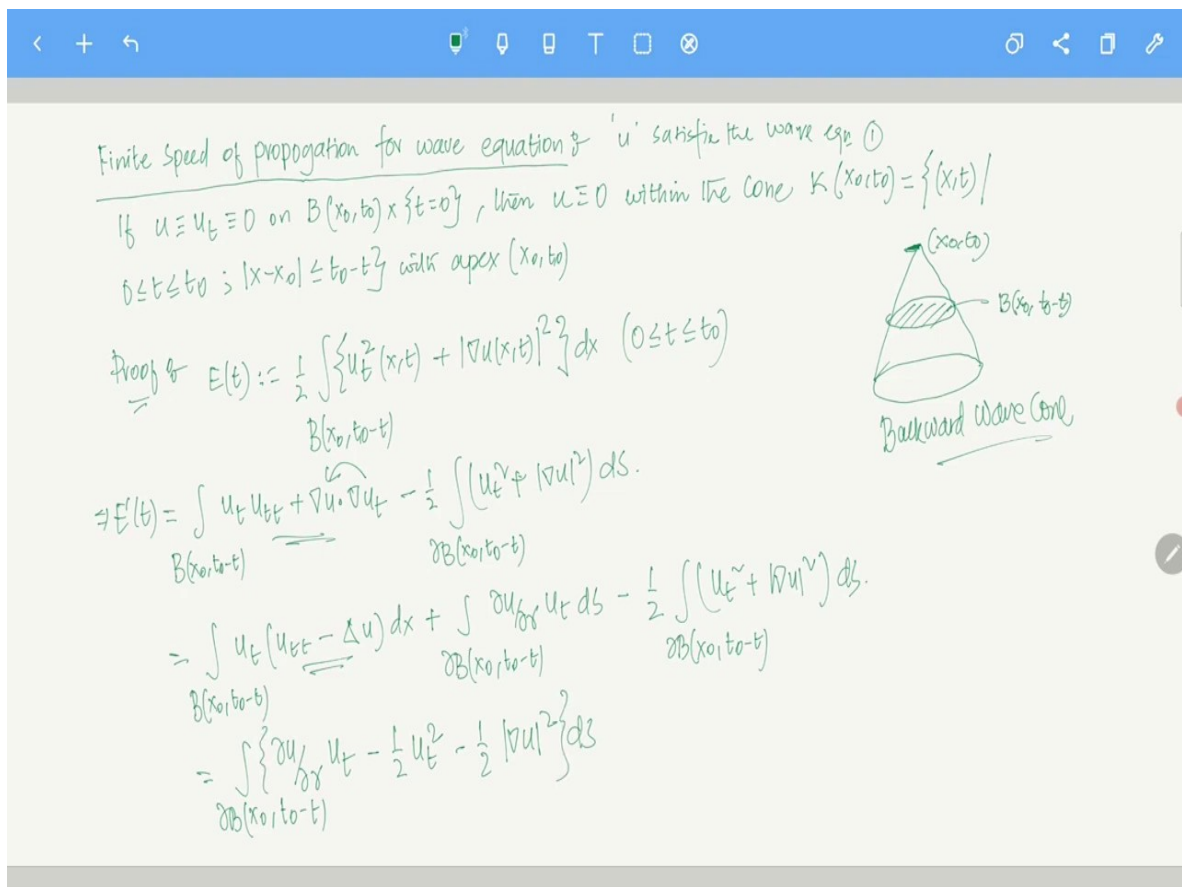 Finite Speed of propogation for wave equation : 'u' satisfie the wave eqn ①
If u ≡ u_t ≡ 0 on B(x₀,t₀) × {t=0}, then u ≡ 0 within the cone K(x₀,t₀) = {(x,t) |
0≤t≤t₀ ; |x-x₀| ≤ t₀-t} with apex (x₀,t₀)
(x₀,t₀)
B(x₀, t₀-t)
Backward Wave Cone
Proof : E(t) := 1/2 ∫ {u_t²(x,t) + |∇u(x,t)|²} dx (0≤t≤t₀)
B(x₀,t₀-t)
⇒ E'(t) = ∫ u_t u_tt + ∇u·∇u_t - 1/2 ∫ (u_t² + |∇u|²) ds.
B(x₀,t₀-t) ∂B(x₀,t₀-t)
= ∫ u_t (u_tt - Δu) dx + ∫ ∂u/∂γ u_t ds - 1/2 ∫ (u_t² + |∇u|²) ds.
B(x₀,t₀-t) ∂B(x₀,t₀-t) ∂B(x₀,t₀-t)
= ∫ {∂u/∂γ u_t - 1/2 u_t² - 1/2 |∇u|²} ds
∂B(x₀,t₀-t)